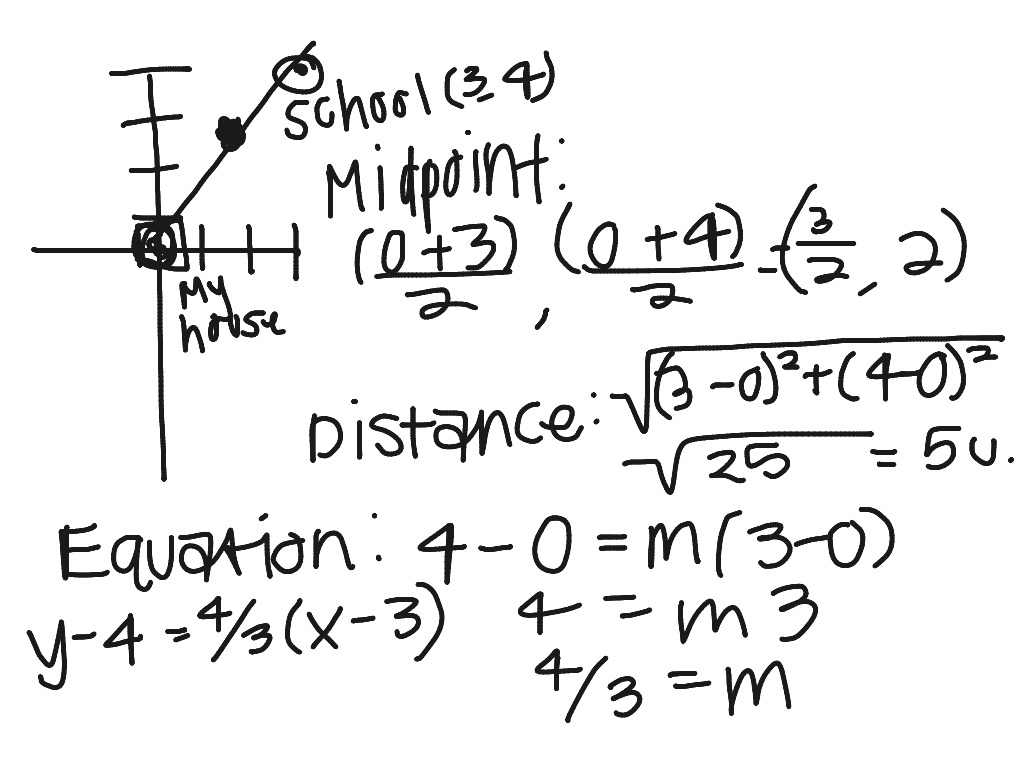 School (3, 4)
Midpoint:
(0 + 3)/2 , (0 + 4)/2 - (3/2, 2)
my
house
Distance: √(3-0)²+(4-0)²
√25 = 5u.
Equation: 4 - 0 = m(3-0)
y-4=4/3(x-3)
4 = m 3
4/3 = m